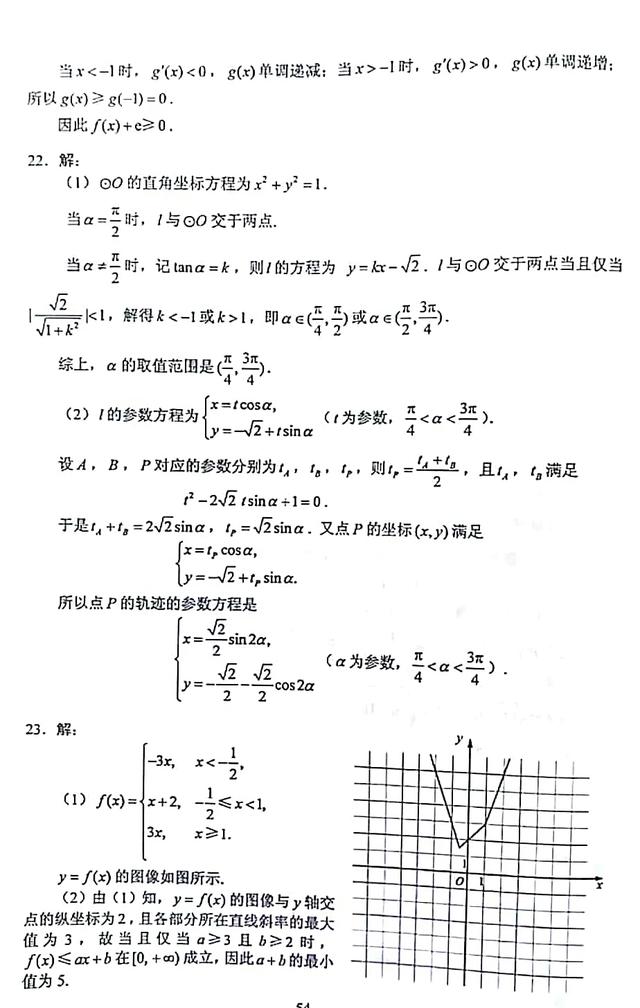 当x<-1时，g′(x)<0，g(x)单调递减；当x>-1时，g′(x)>0，g(x)单调递增；
所以g(x)≥g(-1)=0.
因此f(x)+e≥0.
22．解：
（1）⊙O的直角坐标方程为x²+y²=1.
当α=π/2时，l与⊙O交于两点.
当α≠π/2时，记tanα=k，则l的方程为 y=kx-√2．l与⊙O交于两点当且仅当
|√2/√(1+k²)|<1，解得k<-1或k>1，即α∈(π/4,π/2)或α∈(π/2,3π/4).
综上，α的取值范围是(π/4,3π/4).
（2）l的参数方程为{x=tcosα, y=-√2+tsinα （t为参数，π/4<α<3π/4）.
设A，B，P对应的参数分别为t_A，t_B，t_P，则t_P=(t_A+t_B)/2，且t_A，t_B满足
t²-2√2 tsinα+1=0.
于是t_A+t_B=2√2sinα，t_P=√2sinα．又点P的坐标(x,y)满足
{x=t_P cosα,
y=-√2+t_P sinα.
所以点P的轨迹的参数方程是
{x=√2/2 sin2α,
y=-√2/2-√2/2 cos2α （α为参数，π/4<α<3π/4）.
23．解：
（1）f(x)={-3x, x<-1/2,
x+2, -1/2≤x<1,
3x, x≥1.
y=f(x)的图像如图所示.
（2）由（1）知，y=f(x)的图像与y轴交
点的纵坐标为2，且各部分所在直线斜率的最大
值为3，故当且仅当a≥3且b≥2时，
f(x)≤ax+b在[0,+∞)成立，因此a+b的最小
值为5.
y
1
O 1
x
54